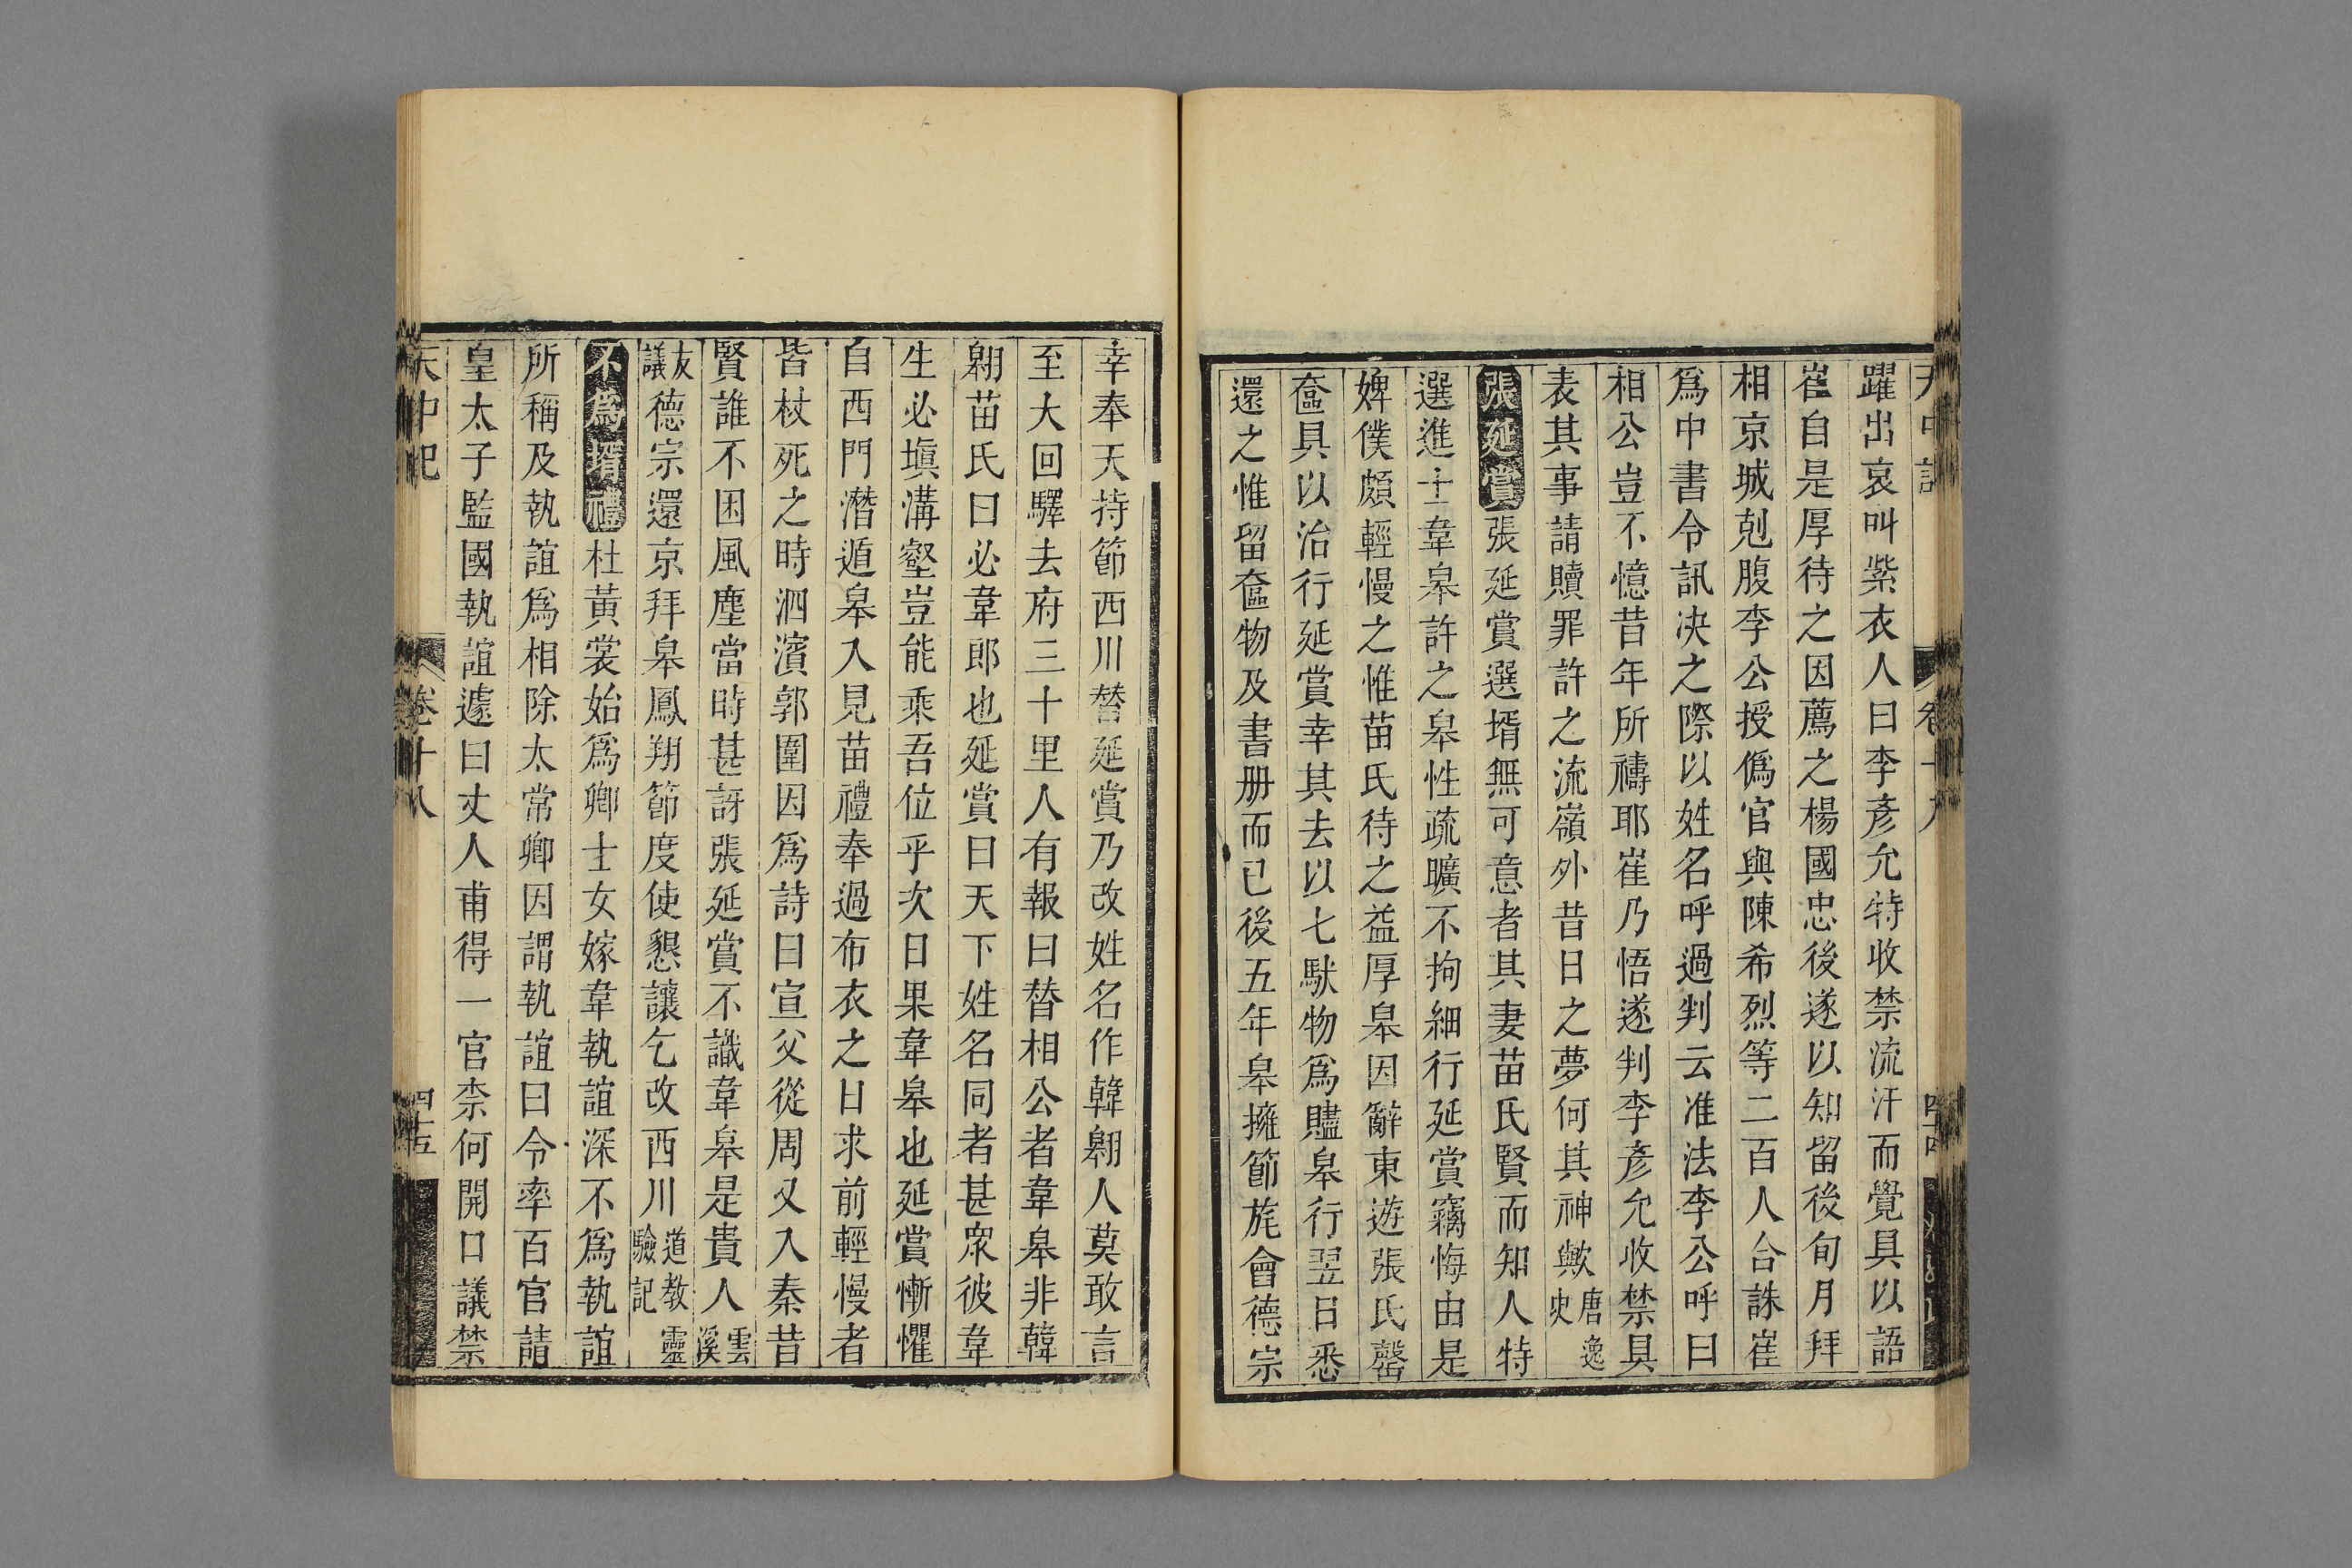 躍出哀叫紫衣人曰李彥允特收禁流汗而覺具以語
崔自是厚待之因薦之楊國忠後遂以知留後旬月拜
相京城剋腹李公授僞官與陳希烈等二百人合誅崔
爲中書令訊决之際以姓名呼過判云准法李公呼曰
相公豈不憶昔年所禱耶崔乃悟遂判李彥允收禁具
表其事請贖罪許之流嶺外昔日之夢何其神歟唐逸史
張延賞張延賞選壻無可意者其妻苗氏賢而知人特
選進士韋皋許之皋性疏曠不拘細行延賞竊悔由是
婢僕頗輕慢之惟苗氏待之益厚皋因辭東遊張氏罄
奩具以治行延賞幸其去以七馱物爲贐皋行翌日悉
還之惟留奩物及書册而已後五年皋擁節旄會德宗
幸奉天持節西川替延賞乃改姓名作韓翺人莫敢言
至大回驛去府三十里人有報曰替相公者韋皋非韓
翺苗氏曰必韋郎也延賞曰天下姓名同者甚衆彼韋
生必塡溝壑豈能乘吾位乎次日果韋皋也延賞慚懼
自西門潛遁皋入見苗禮奉過布衣之日求前輕慢者
皆杖死之時泗濱郭圍因爲詩曰宣父從周又入秦昔
賢誰不困風塵當時甚訝張延賞不識韋皋是貴人雲溪
友議德宗還京拜皋鳳翔節度使懇讓乞改西川道教靈驗記
不爲壻禮杜黃裳始爲卿士女嫁韋執誼深不爲執誼
所稱及執誼爲相除太常卿因謂執誼曰令率百官請
皇太子監國執誼遽曰丈人甫得一官柰何開口議禁
天中記
卷十八
四十五